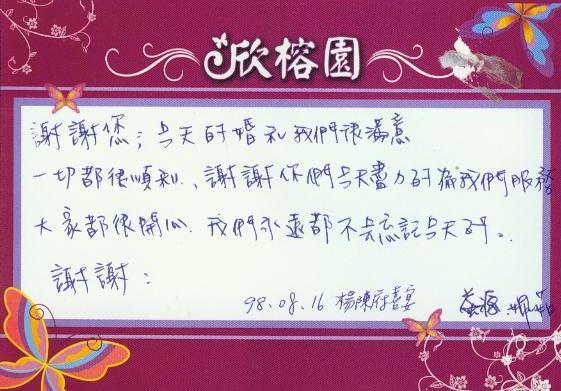 欣榕園
謝謝您；今天的婚禮我們很滿意
一切都很順利、謝謝你們今天盡力的為我們服務
大家都很開心．我們永遠都不會忘記今天的。
謝謝：
98.08.16 楊陳府喜宴